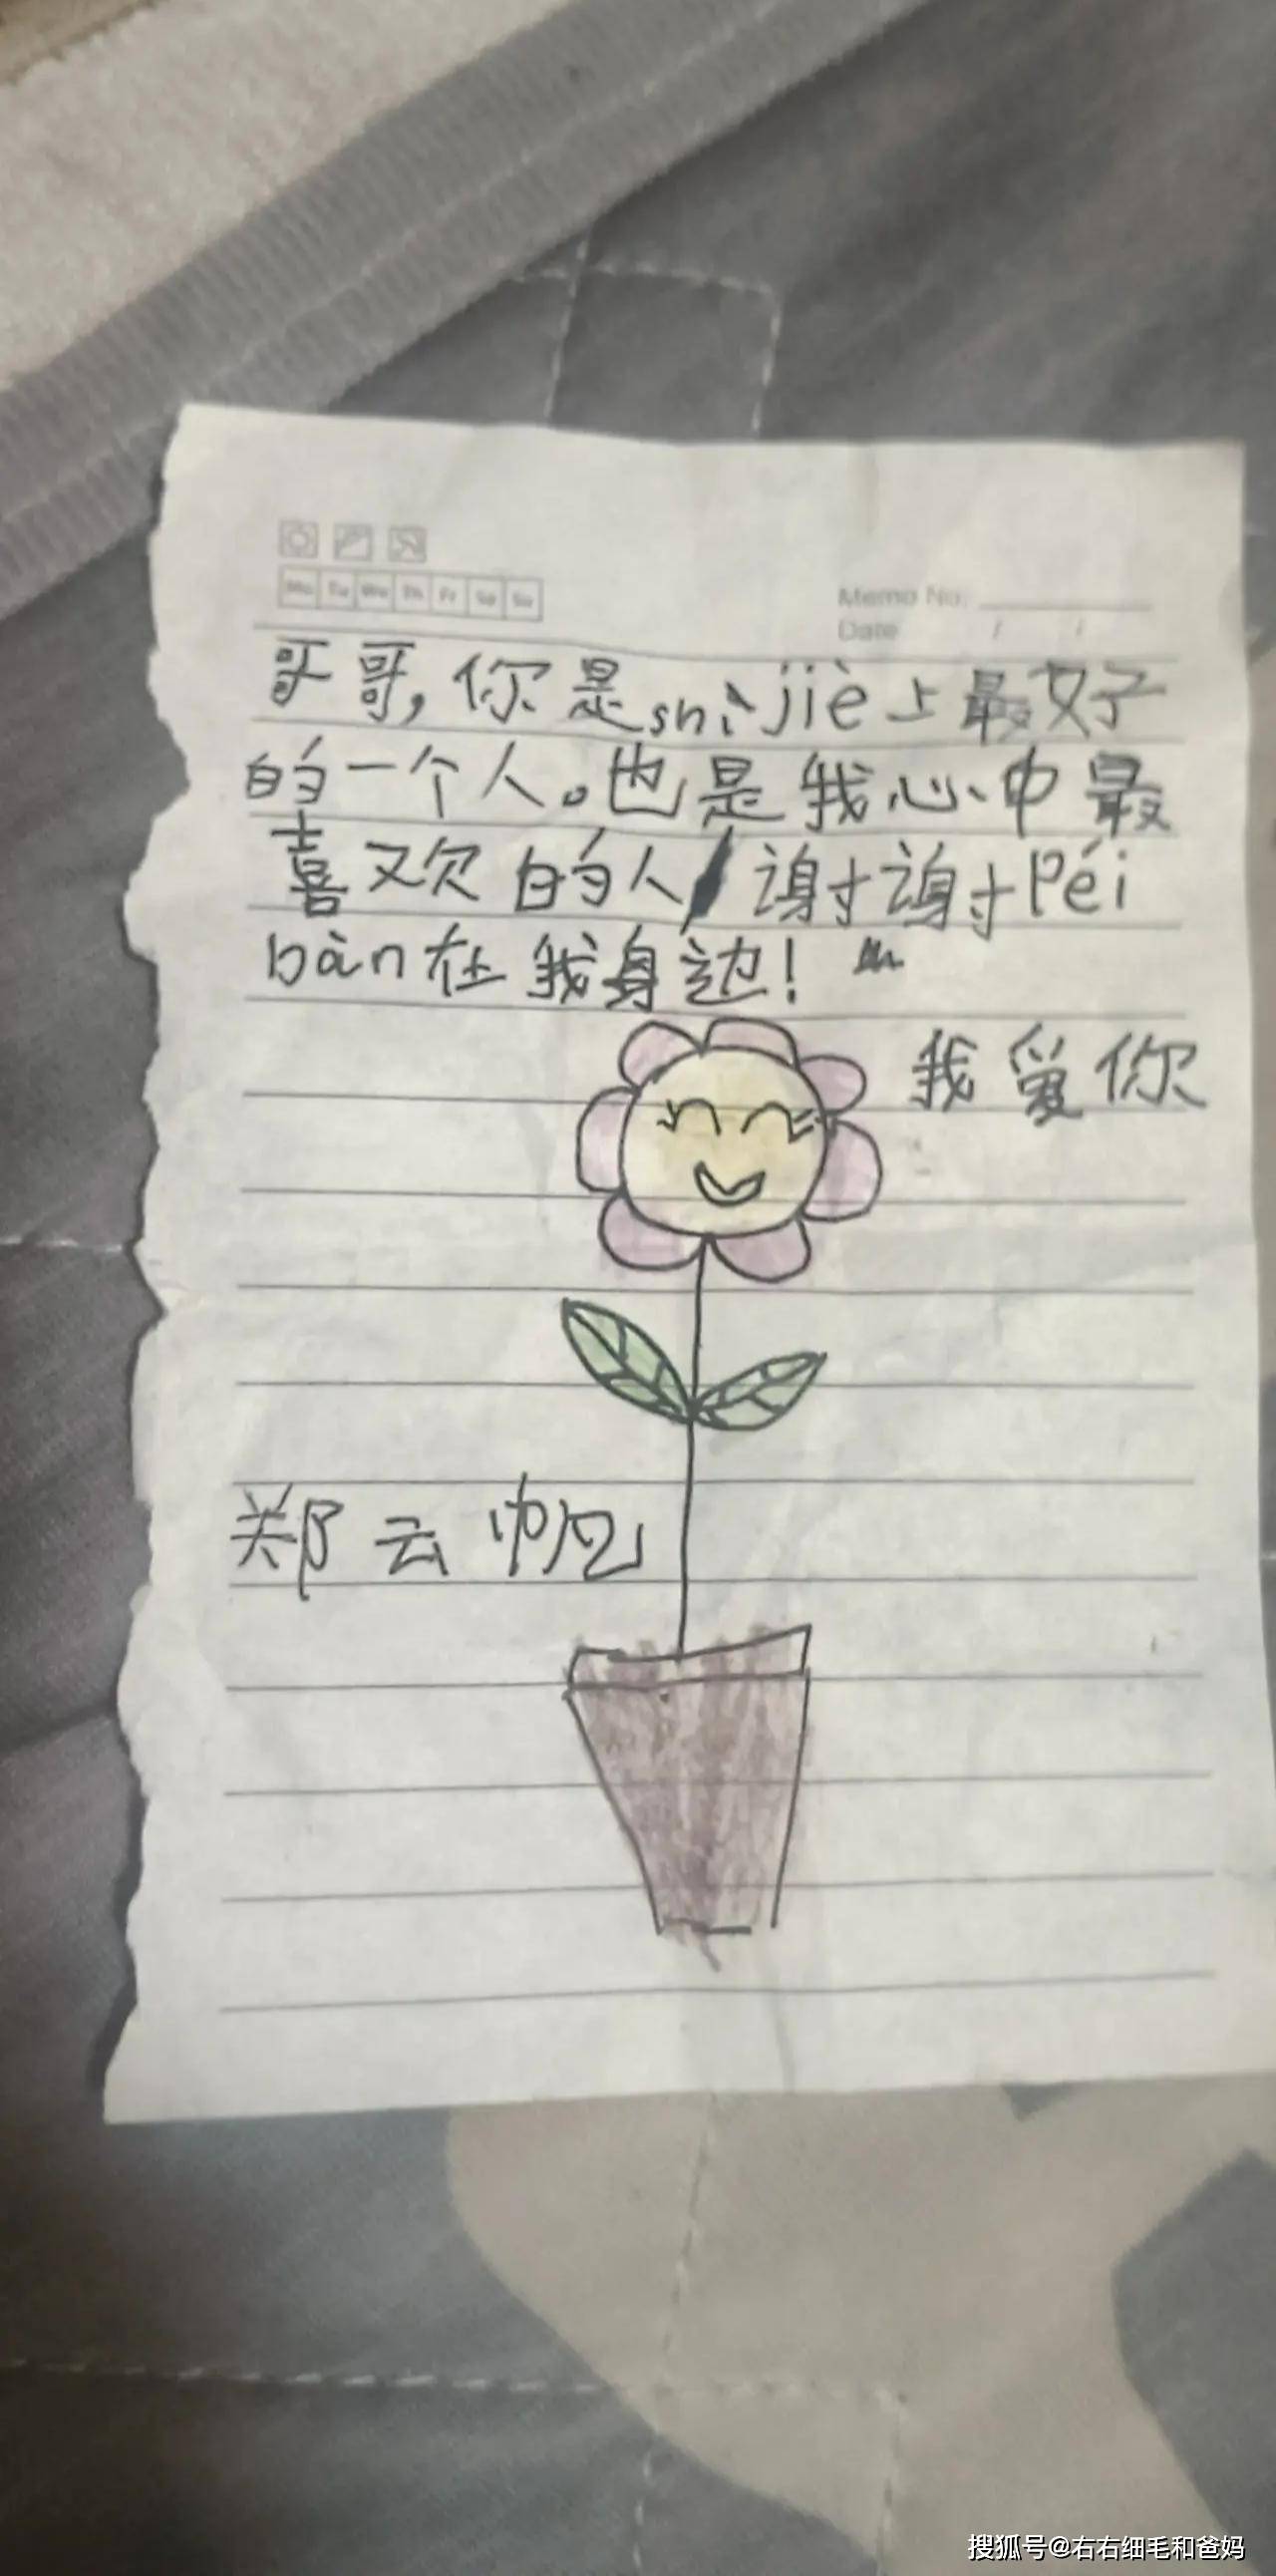 Mo Tu We Th Fr Sa Su
Memo No.
Date / /
哥哥，你是shìjiè上最好
的一个人。也是我心中最
喜欢的人 谢谢Péi
bàn在我身边！
我爱你
郑云帆
搜狐号@右右细毛和爸妈